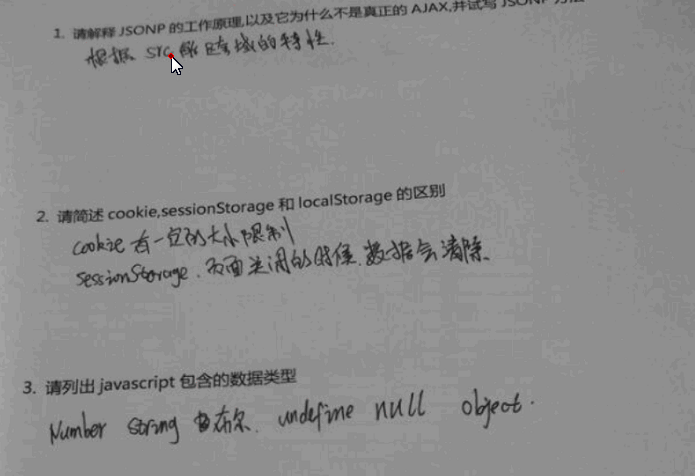 1. 请解释 JSONP 的工作原理,以及它为什么不是真正的 AJAX,并试写 JSONP 方法
根据 src 能跨域的特性.
2. 请简述 cookie,sessionStorage 和 localStorage 的区别
cookie 有一定的大小限制
sessionStorage. 页面关闭的时候.数据会清除.
3. 请列出 javascript 包含的数据类型
Number string 布尔. undefine null object.